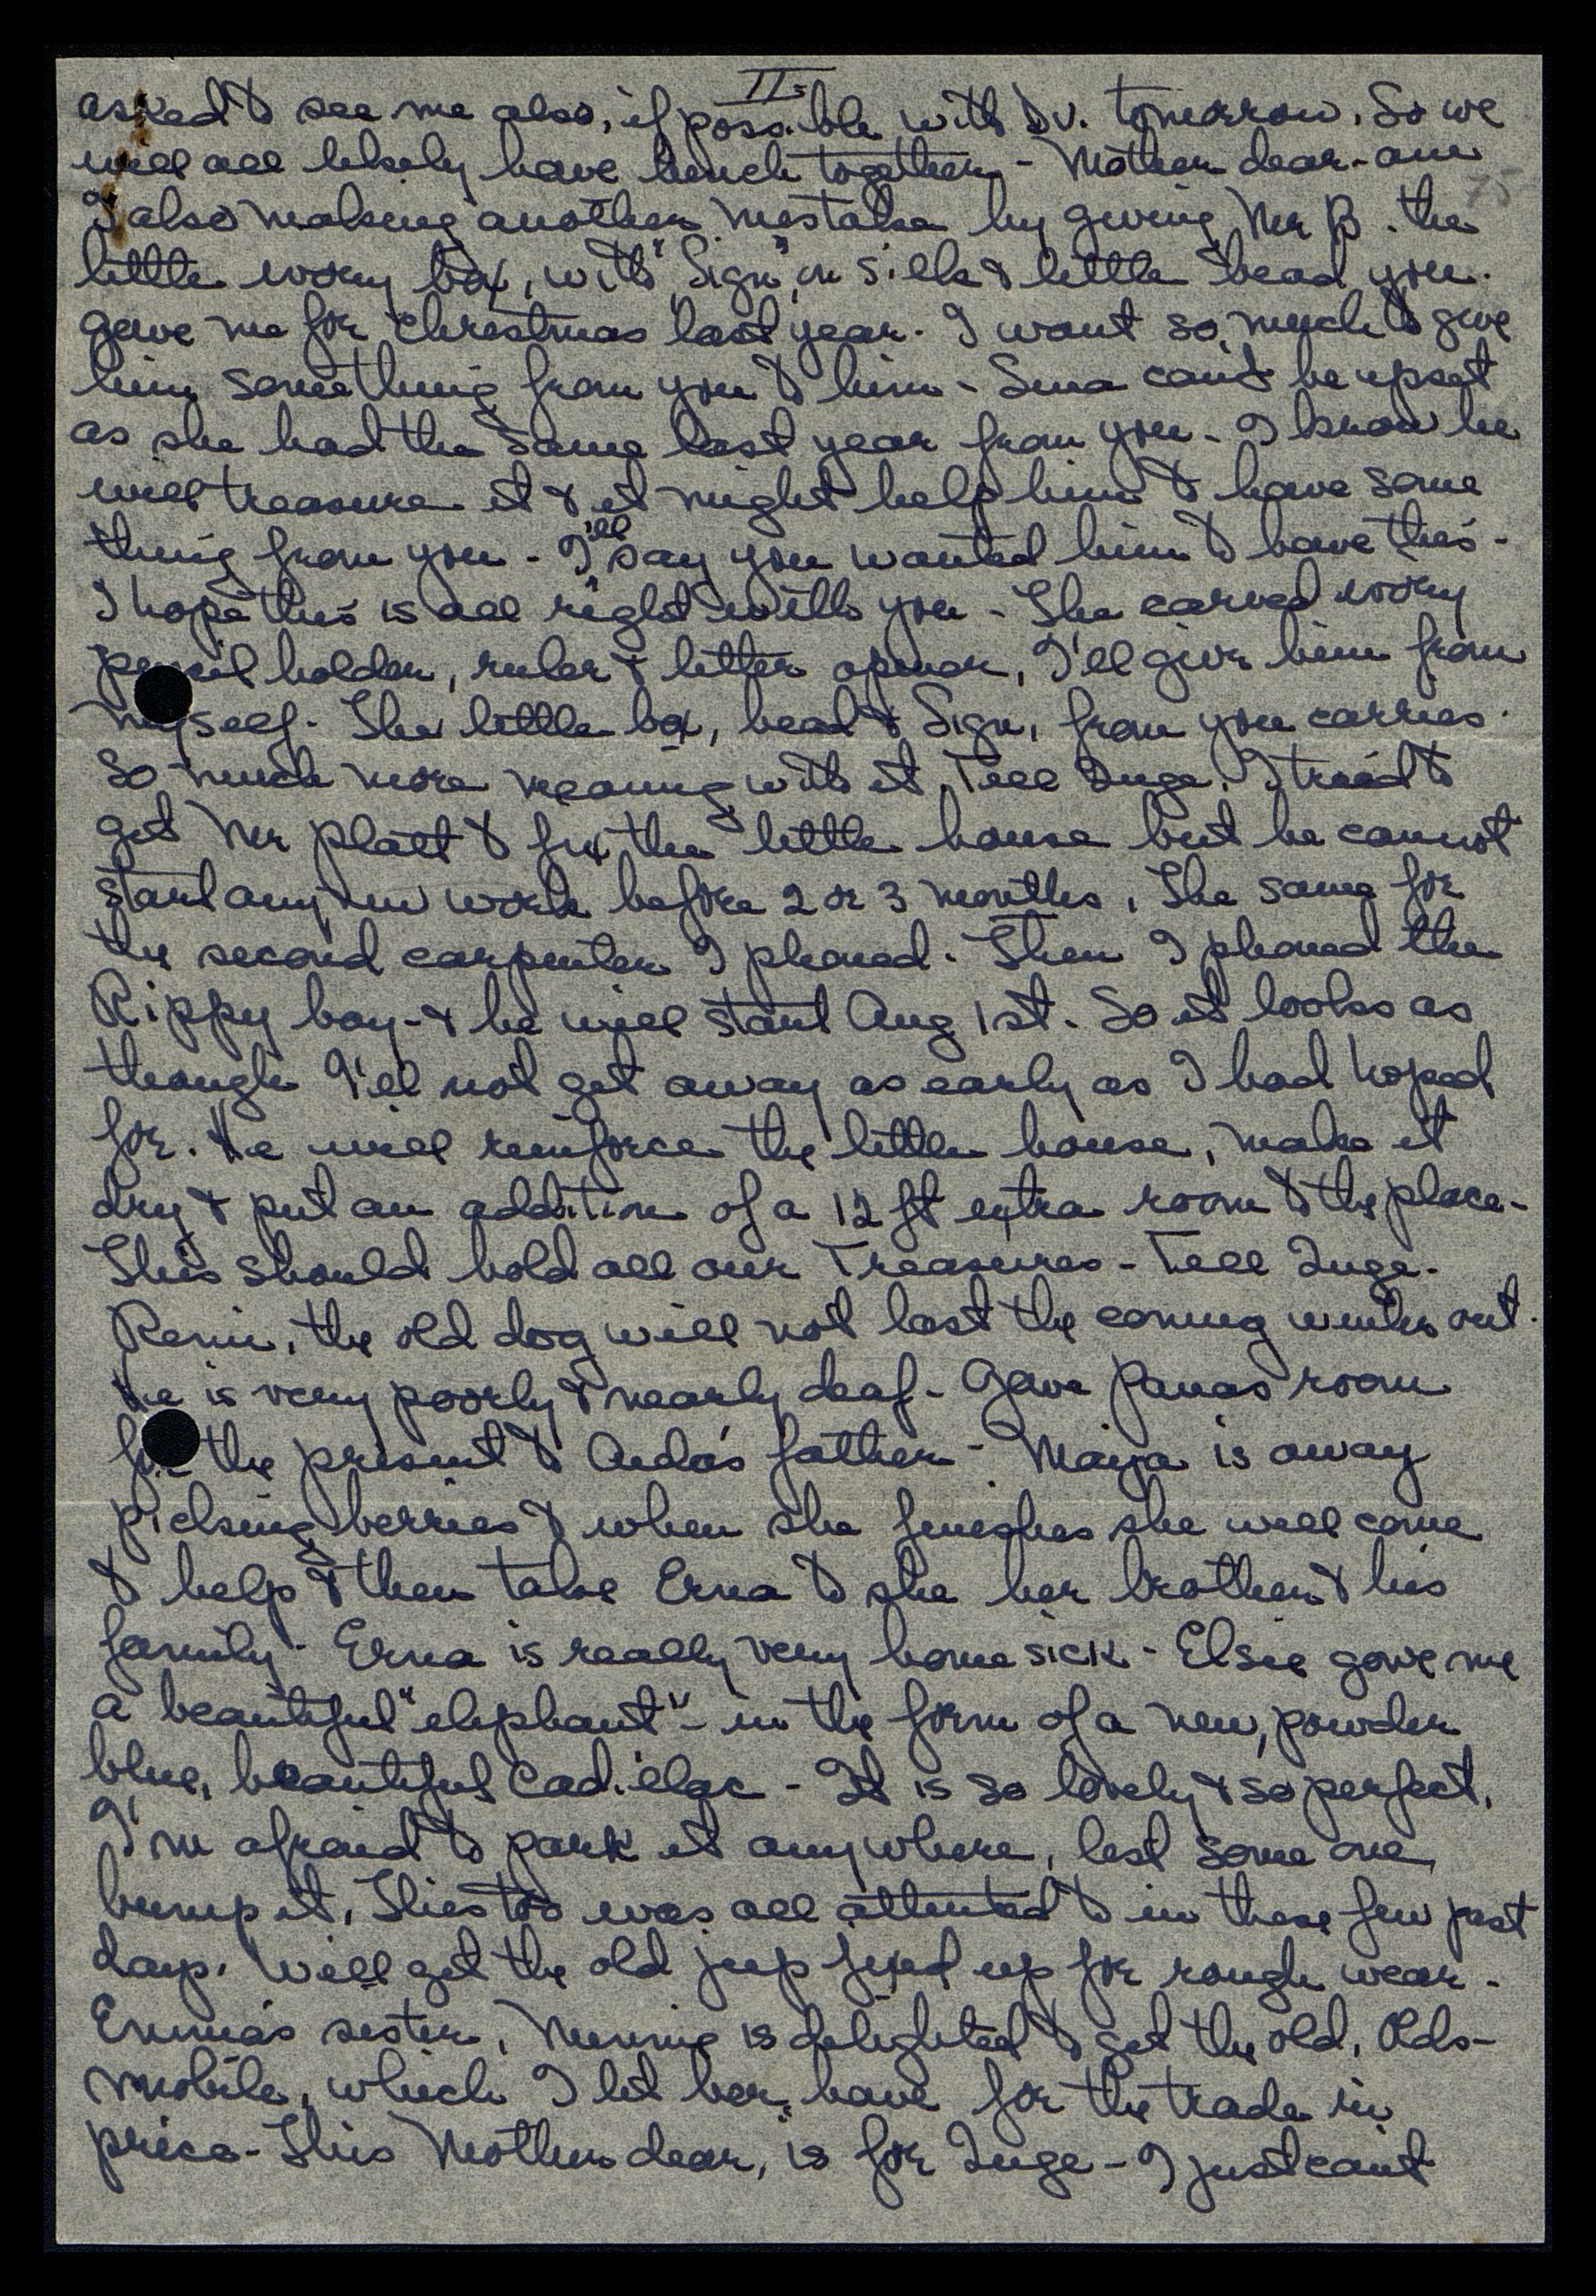 II
asked to see me also, if possible with Dv. tomorrow. So we
will all likely have lunch together - Mother dear - am
75
I also making another mistake by giving Mr B. the
little ivory box, with "Sign", on silk & little bead you
gave me for Christmas last year. I want so much to give
him something from you to him - can't be upset
as she had the same last year from you - I know he
will treasure it & it might help him to have some
thing from you - I'll say you wanted him to have this -
I hope this is all right with you - The carved ivory
pencil holder, ruler & letter opener, I'll give him from
myself. The little box, bead & Sign, from you carries
so much more meaning with it. Tell Inge, I tried to
get Mr Platt to fix the little house but he cannot
start any new work before 2 or 3 months, The same for
the second carpenter I phoned. Then I phoned the
Rippy boy - & he will start Aug 1st. So it looks as
though I'll not get away as early as I had hoped
for. He will reinforce the little house, make it
dry & put an addition of a 12 ft extra room to the place -
This should hold all our Treasures - Tell Inge.
the old dog will not last the coming winter out.
He is very poorly & nearly deaf - Gave Panas room
for the present to Aida's father - Maija is away
picking berries & when she finishes she will come
to help & then take Erna to she her brother & his
family - Erna is really very home sick - Elsie gave me
a beautiful "elephant" - in the form of a new, powder
blue, beautiful Cadillac - It is so lovely & so perfect,
I'm afraid to park it anywhere, lest some one
bump it. This too was all attented to in these few past
days. Will get the old jeep fixed up for rough wear -
Emma's sister, Minnie is delighted to get the old, Olds-
mobile, which I let her have for the trade in
price - This Mother dear, is for Inge - I just can't